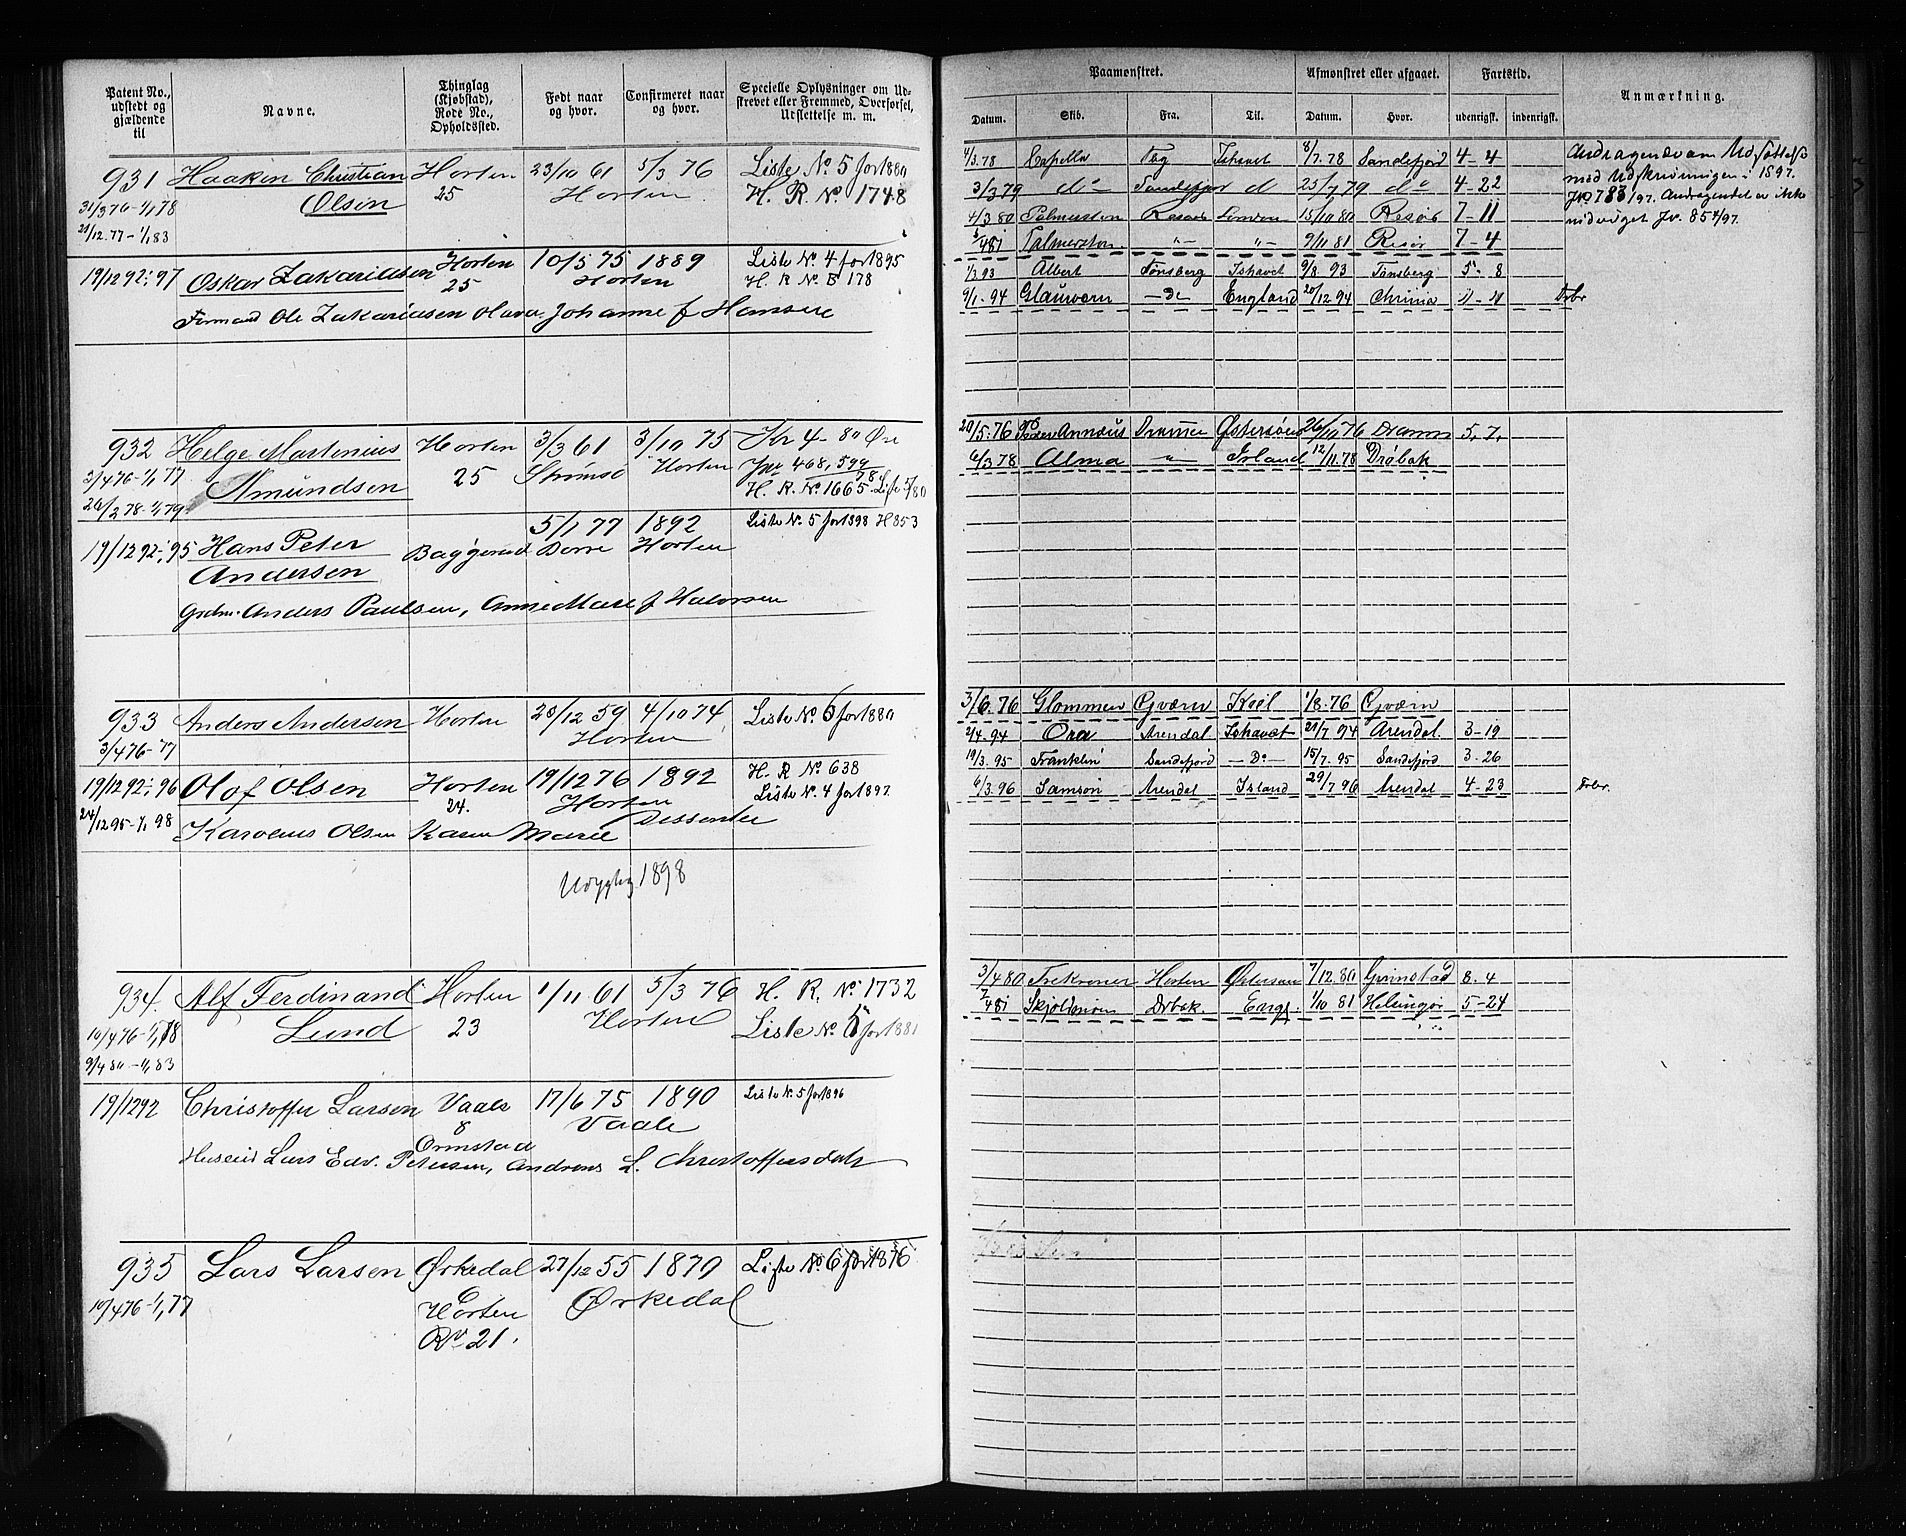 Patent No., udstedt og gjældende til
Navne.
Thinglag (Kjøbstad), Rode No., Opholdssted.
Født naar og hvor.
Confirmeret naar og hvor.
Specielle Oplysninger om Udskrevet eller Fremmed, Overførsel, Udslettelse m. m.
931 Haakin Christian Horten 23/10 61 5/3 76 Liste No. 5 for 1880
Olsen 25 Horten H. R. No. 1748
31/3 76-1/1 78
21/12 77-1/1 83
19/12 92-1/1 97 Oskar Zakariasen Horten 10/5 75 1889 Liste No. 4 for 1895
25 Horten H. R. No. B 178
Ole Zakariasen Johanne f Hansen
932 Helge Martenius Horten 3/3 61 3/10 75 Kr 4-80 Øre
2/4 76-1/1 77 Amundsen 25 Horten Jnr 468, 599
26/2 78-1/1 79 H. R. No. 1665 Liste 5/80
5/1 77 1892 Liste No. 5 for 1898 H 853
19/12 92-1/1 95 Hans Peter Borre Horten
Andersen
Anders Paulsen, Anne Marie f Halvorsen
933 Anders Andersen Horten 28/12 59 4/10 74 Liste No. 6 for 1880
3/4 76-77 Horten
19/12 92-1/1 96 Olof Olsen Horten 19/12 76 1892 H. R No. 638
24. Horten Liste No. 4 for 1897
24/12 95-1/1 98 Olsen Karen Marie Dissenter
1898
934. Alf Ferdinand Horten 1/11 61 5/3 76 H. R. No. 1732
10/4 76-1/1 78 Lund 23 Horten Liste No. 5 for 1881
9/4 80-1/1 83
19/12 92 Christoffer Larsen Vaale 17/6 75 1890 Liste No. 5 for 1896
8 Vaale
Ormstad
Lars Edv. Petersen, L. Christoffersdatr
935 Lars Larsen Ørkedal 27/12 55 1870 Liste No. 6 for 1876
10/4 76-1/1 77 Horten Ørkedal
21.
Paamønstret.
Afmønstret eller afgaaet.
Fartstid.
Anmærkning.
Datum. Skib. Fra. Til. Datum. Hvor. udenrigsk. indenrigsk.
4/3 78 Capella Ishavet 8/7 78 Sandefjord 4-4
3/3 79 do Sandefjor d 25/7 79 do 4-22
4/3 80 Palmerston London 15/10 80 Resør 7-11
Palmerston " " 9/11 81 Resør 7-4
1/3 93 Albert Tønsberg Ishavet 9/8 93 Tønsberg 5-8
9/1-94 do England 20/12 94 Chrnia 11-11
Andragende om Udsættelse
med Udskrivningen i 1897.
Jr 733/97. Andragendet er ikke
Jr. 854/97.
20/5 76 Peder Annæus Østersøen 26/11 76 Dramm 5.7.
6/3 78 Alma " Island 12/11 78 Drøbak
3/6 76 Glommen Kiel 1/8-76
2/4-94 Ora Arendal Ishavet 21/7 94 Arendal 3-19
19/3 95 Franklin Sandefjord Do 15/7 95 Sandefjord 3-26
6/3 96 Samson Arendal Island 29/7 96 Arendal 4-23
3/4 80 Trekroner Horten Østersøen 7/12 80 Grimstad 8.4
1/10 81 Helsingør 5-24